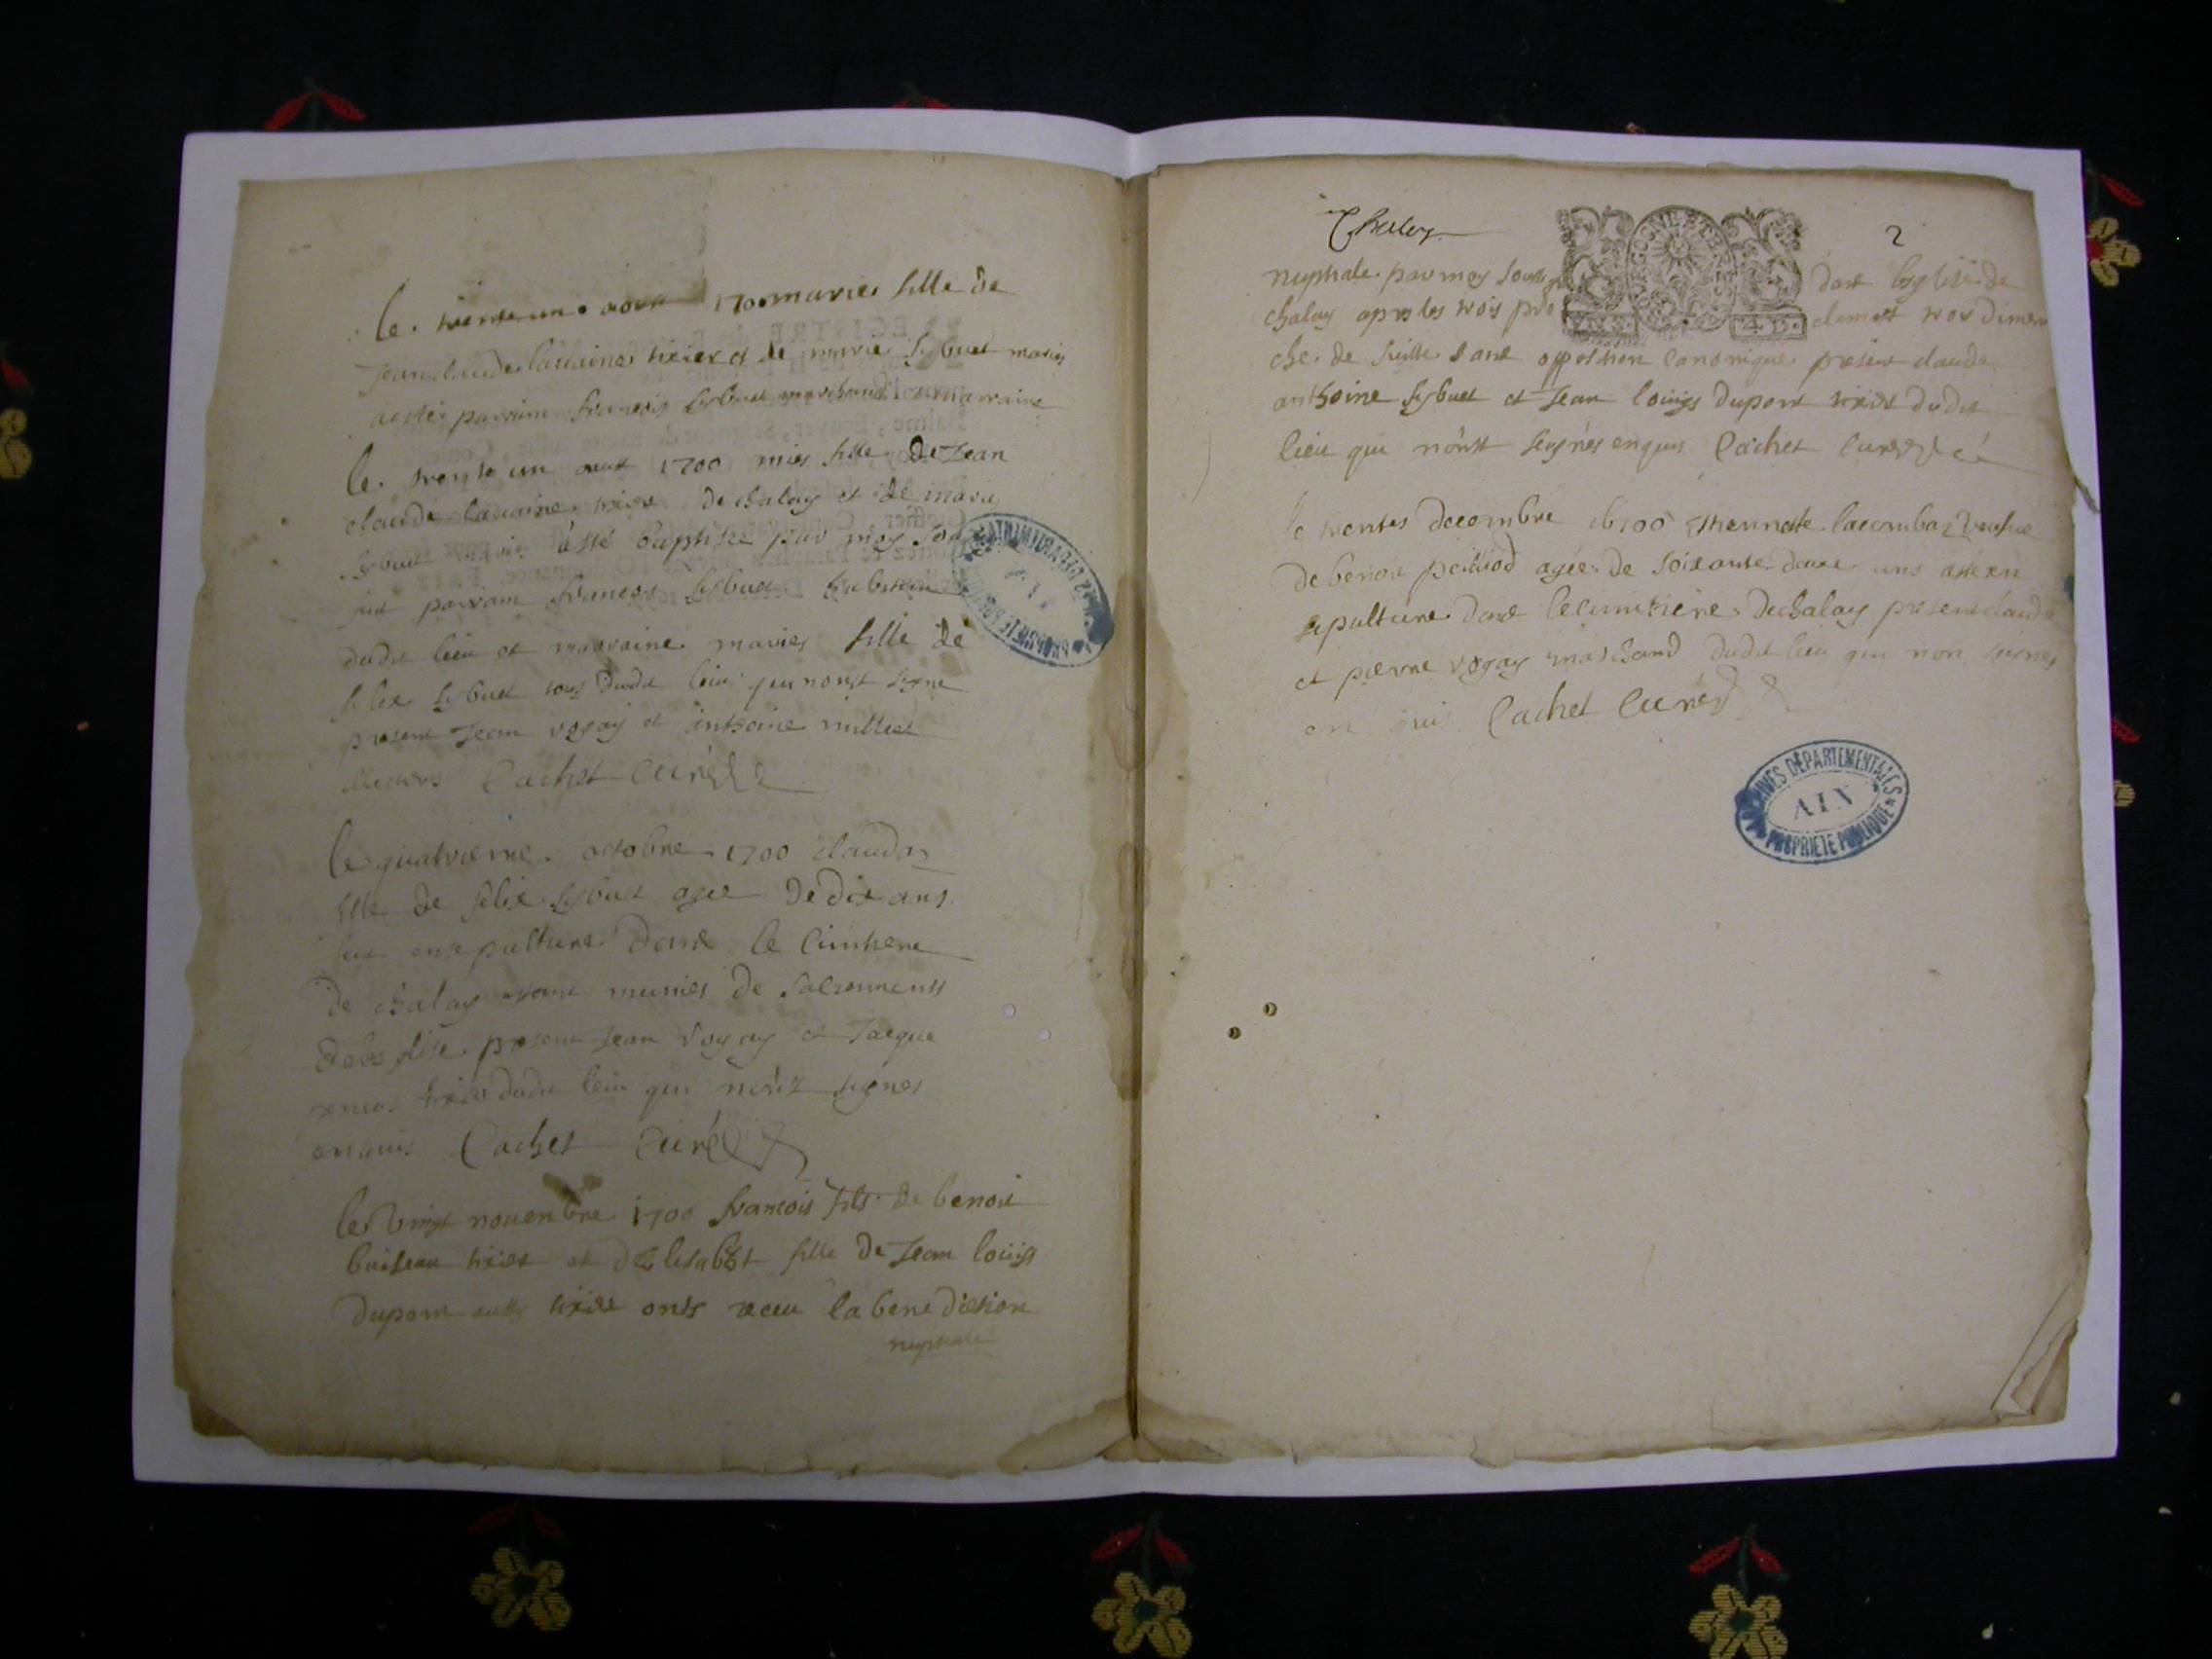 le trente un aout 1700 marie fille de
Jean claude lauaine tixier et de marie sybuet mariés
a esté parrain francois sybuet marchand et marraine
le trente un aust 1700 marie fille de Jean
claude lauaine tixier de chalay et de marie
sybuet mariés a esté baptisee par moy sou
fut parrain francois sybuet habitan
dudit lieu et marraine marie fille de
felix sybuet tous dudit lieu qui nont signe
present Jean vogay et anthoine millet
Cachet Curé
le quatrieme octobre 1700 claudaz
fille de felix sybuet agee de dix ans
fut ensepulturé dans le cimitiere
de chalay munies de sacrements
de leglise present Jean vogay et Jacque
tixier dudit lieu qui n'ont signes
enquis Cachet Curé
le vingt nouenbre 1700 francois fils de benoit
buiseau tixier et de Elisabet fille de Jean loüis
dupont aussy tixier onts receu la benediction
nuptiale
Chaley
2
nuptiale par moy dans leglise de
chalay apres les trois pro trois diman
che de suitte sans opposition canonique present claude
anthoine sybuet et Jean loüys dupont tixier dudit
lieu qui n'ont seignés enquis Cachet curé
le trentes decembre 1700 Ethiennete lacombaz veufue
de benoit peillod agée de soixante douze ans a esté en
sepulturee dans le cimitiere de chalay present claude
et pierre vogay marchand dudit lieu qui non seignes
en quis Cachet Curé
ARCHIVES DEPARTEMENTALES
AIN
PROPRIETE PUBLIQUE